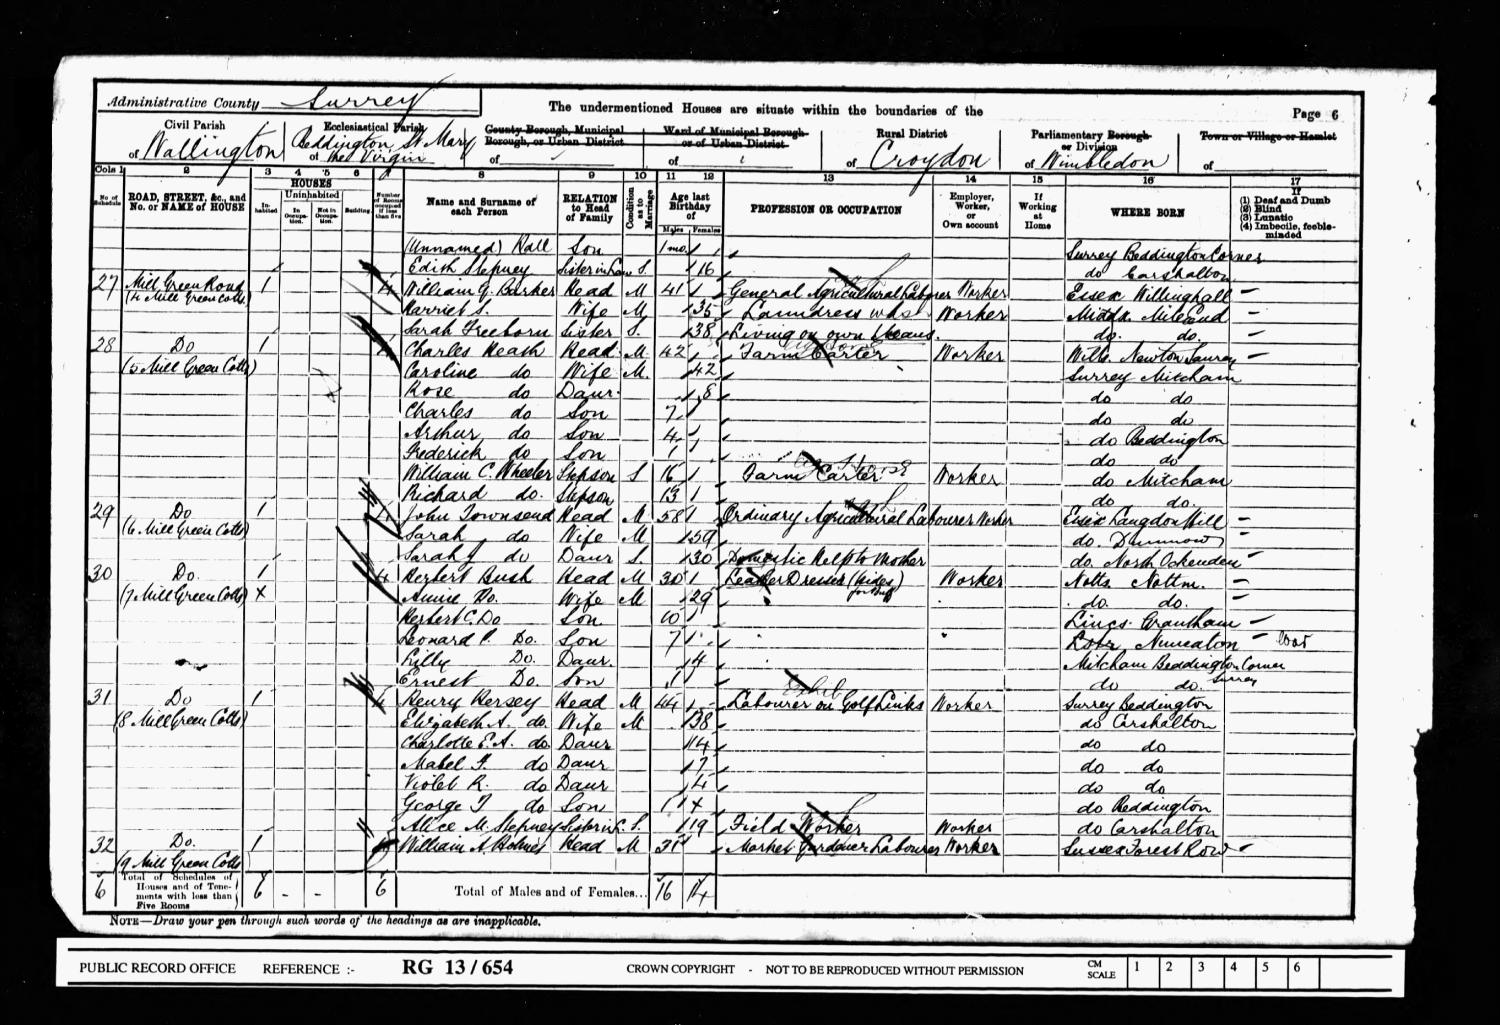 Administrative County Surrey
The undermentioned Houses are situate within the boundaries of the
Page 6
Civil Parish of Wallington
Ecclesiastical Parish of Beddington St Mary the Virgin
County Borough, Municipal Borough, or Urban District of
Ward of Municipal Borough or of Urban District of
Rural District of Croydon
Parliamentary Borough or Division of Wimbledon
Town or Village or Hamlet of
Cols 1 2 3 4 5 6 7 8 9 10 11 12 13 14 15 16 17
No. of Schedule
ROAD, STREET, &c., and No. or NAME of HOUSE
HOUSES
Inhabited
Uninhabited
In Occupation.
Not in Occupation.
Building.
Number of Rooms occupied if less than five
Name and Surname of each Person
RELATION to Head of Family
Condition as to Marriage
Age last Birthday of
Males Females
PROFESSION OR OCCUPATION
Employer, Worker, or Own account
If Working at Home
WHERE BORN
If (1) Deaf and Dumb (2) Blind (3) Lunatic (4) Imbecile, feeble-minded
(Unnamed) Hall Son 1 mo. Surrey Beddington Corner
Edith Stepney Sister in Law S. 16 do Carshalton
27 Mill Green Road 1 4 William G. Barker Head M 41 General Agricultural Labourer Worker Essex Willinghall
(4 Mill Green Cotts) Harriet S. Wife M 35 Laundress Worker Middx Mile End
Sarah Freeborn Sister S. 38 Living on own Means. do. do.
28 Do 1 4 Charles Heath Head M. 42 Farm Carter Worker Wilts. Newton
(5 Mill Green Cotts) Caroline do Wife M. 42 Surrey Mitcham
Rose do Daur. 8 do do
Charles do Son 7 do do
Arthur do Son 4 do Beddington
Frederick do Son 1 do do
William C. Wheeler Stepson S 16 Farm Carter Worker do Mitcham
Richard do. Stepson 13 do do.
29 Do 1 John Townsend Head M 58 Ordinary Agricultural Labourer Worker Essex Langdon Hill
(6 Mill Green Cotts) Sarah do Wife M 59 do. Dunmow
Sarah J do Daur S. 30 Domestic Help to Mother do. North Ockenden
30 Do. 1 4 Herbert Bush Head M 30 Leather Dresser (hides) for Buff Worker Notts Nottm.
(7 Mill Green Cotts) x Annie Do. Wife M 29 do. do.
Herbert C. Do Son 10 Lincs. Grantham
Leonard P. Do. Son 7 Nuneaton
Lilly Do. Daur. 4 Mitcham Beddington Corner
Ernest Do. Son 1 do do. Surrey
31 Do 1 4 Henry Hersey Head M 44 Labourer on Golf Links Worker Surrey Beddington
(8 Mill Green Cotts) Elizabeth A. do. Wife M 38 do Carshalton
Charlotte E.A. do Daur 14 do do
Mabel F. do Daur 7 do do
Violet R. do Daur 4 do do
George T do Son 1 do Beddington
Alice M. Stepney Sister in L. S. 19 Field Worker Worker do Carshalton
32 Do. 1 William A. Holmes Head M 31 Market Gardener Labourer Worker Sussex Forest Row
(9 Mill Green Cotts)
6 Total of Schedules of Houses and of Tenements with less than Five Rooms 6 - - 6 Total of Males and of Females... 16 14
NOTE—Draw your pen through such words of the headings as are inapplicable.
PUBLIC RECORD OFFICE REFERENCE :- RG 13 / 654 CROWN COPYRIGHT - NOT TO BE REPRODUCED WITHOUT PERMISSION CM SCALE 1 2 3 4 5 6